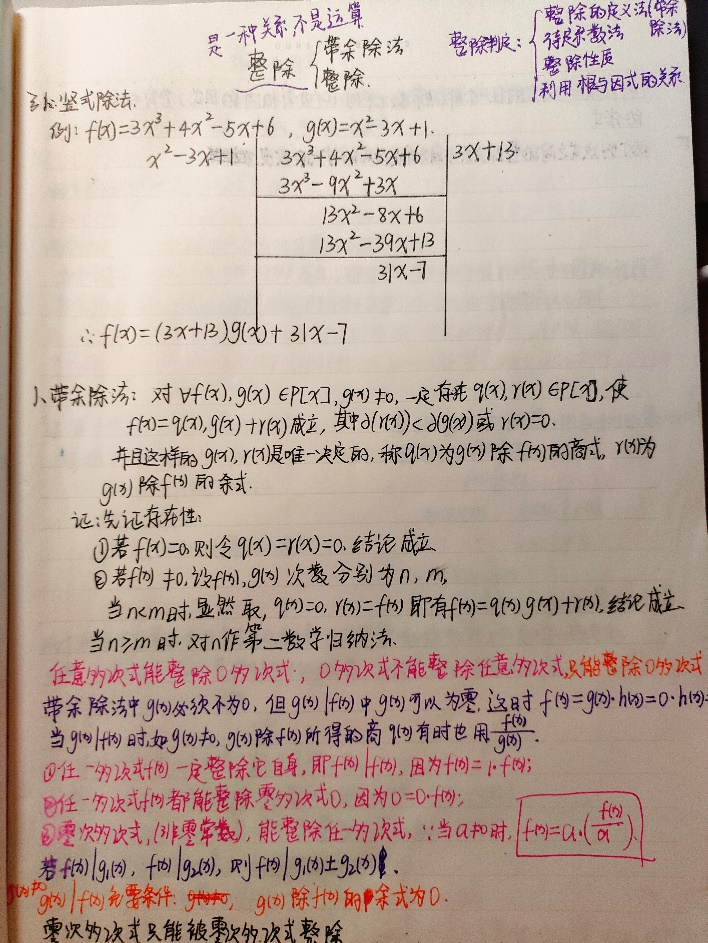 是一种关系不是运算
整除 { 带余除法
整除.
整除判定: { 整除的定义法(带余除法)
待定系数法
整除性质
利用根与因式的关系
竖式除法.
例: f(x)=3x³+4x²-5x+6 , g(x)=x²-3x+1.
x²-3x+1 3x³+4x²-5x+6 3x+13.
3x³-9x²+3x
13x²-8x+6
13x²-39x+13
31x-7
∴ f(x)=(3x+13)g(x)+31x-7
1、带余除法: 对∀f(x), g(x)∈P[x], g(x)≠0, 一定存在 q(x), r(x)∈P[x], 使
f(x)=q(x), g(x)+r(x)成立, 其中∂(r(x))<∂(g(x))或r(x)=0.
并且这样的g(x), r(x)是唯一决定的, 称q(x)为g(x)除f(x)的商式, r(x)为
g(x)除f(x)的余式.
证: 先证存在性:
①若f(x)=0, 则令q(x)=r(x)=0, 结论成立
②若f(x)≠0, 设f(x), g(x)次数分别为n, m,
当n<m时, 显然取, q(x)=0, r(x)=f(x) 即有f(x)=q(x)g(x)+r(x), 结论成立
当n≥m时, 对n作第二数学归纳法.
任意多次式能整除0多次式, 0多次式不能整除任意多次式, 只能整除0多次式
带余除法中g(x)必须不为0, 但g(x)|f(x)中g(x)可以为零, 这时f(x)=g(x)·h(x)=0·h(x)=
当g(x)|f(x)时, 如g(x)≠0, g(x)除f(x)所得的商q(x)有时也用f(x)/g(x).
①任一多次式f(x)一定整除它自身, 即f(x)|f(x), 因为f(x)=1·f(x);
②任一多次式f(x)都能整除零多次式0, 因为0=0·f(x);
③零次多次式, (非零常数), 能整除任一多次式, ∵当a≠0时, f(x)=a·(f(x)/a).
若f(x)|g₁(x), f(x)|g₂(x), 则f(x)|g₁(x)±g₂(x).
g(x)≠0 g(x)|f(x)充要条件: g(x)除f(x)的余式为0.
零次多次式只能被零次多次式整除